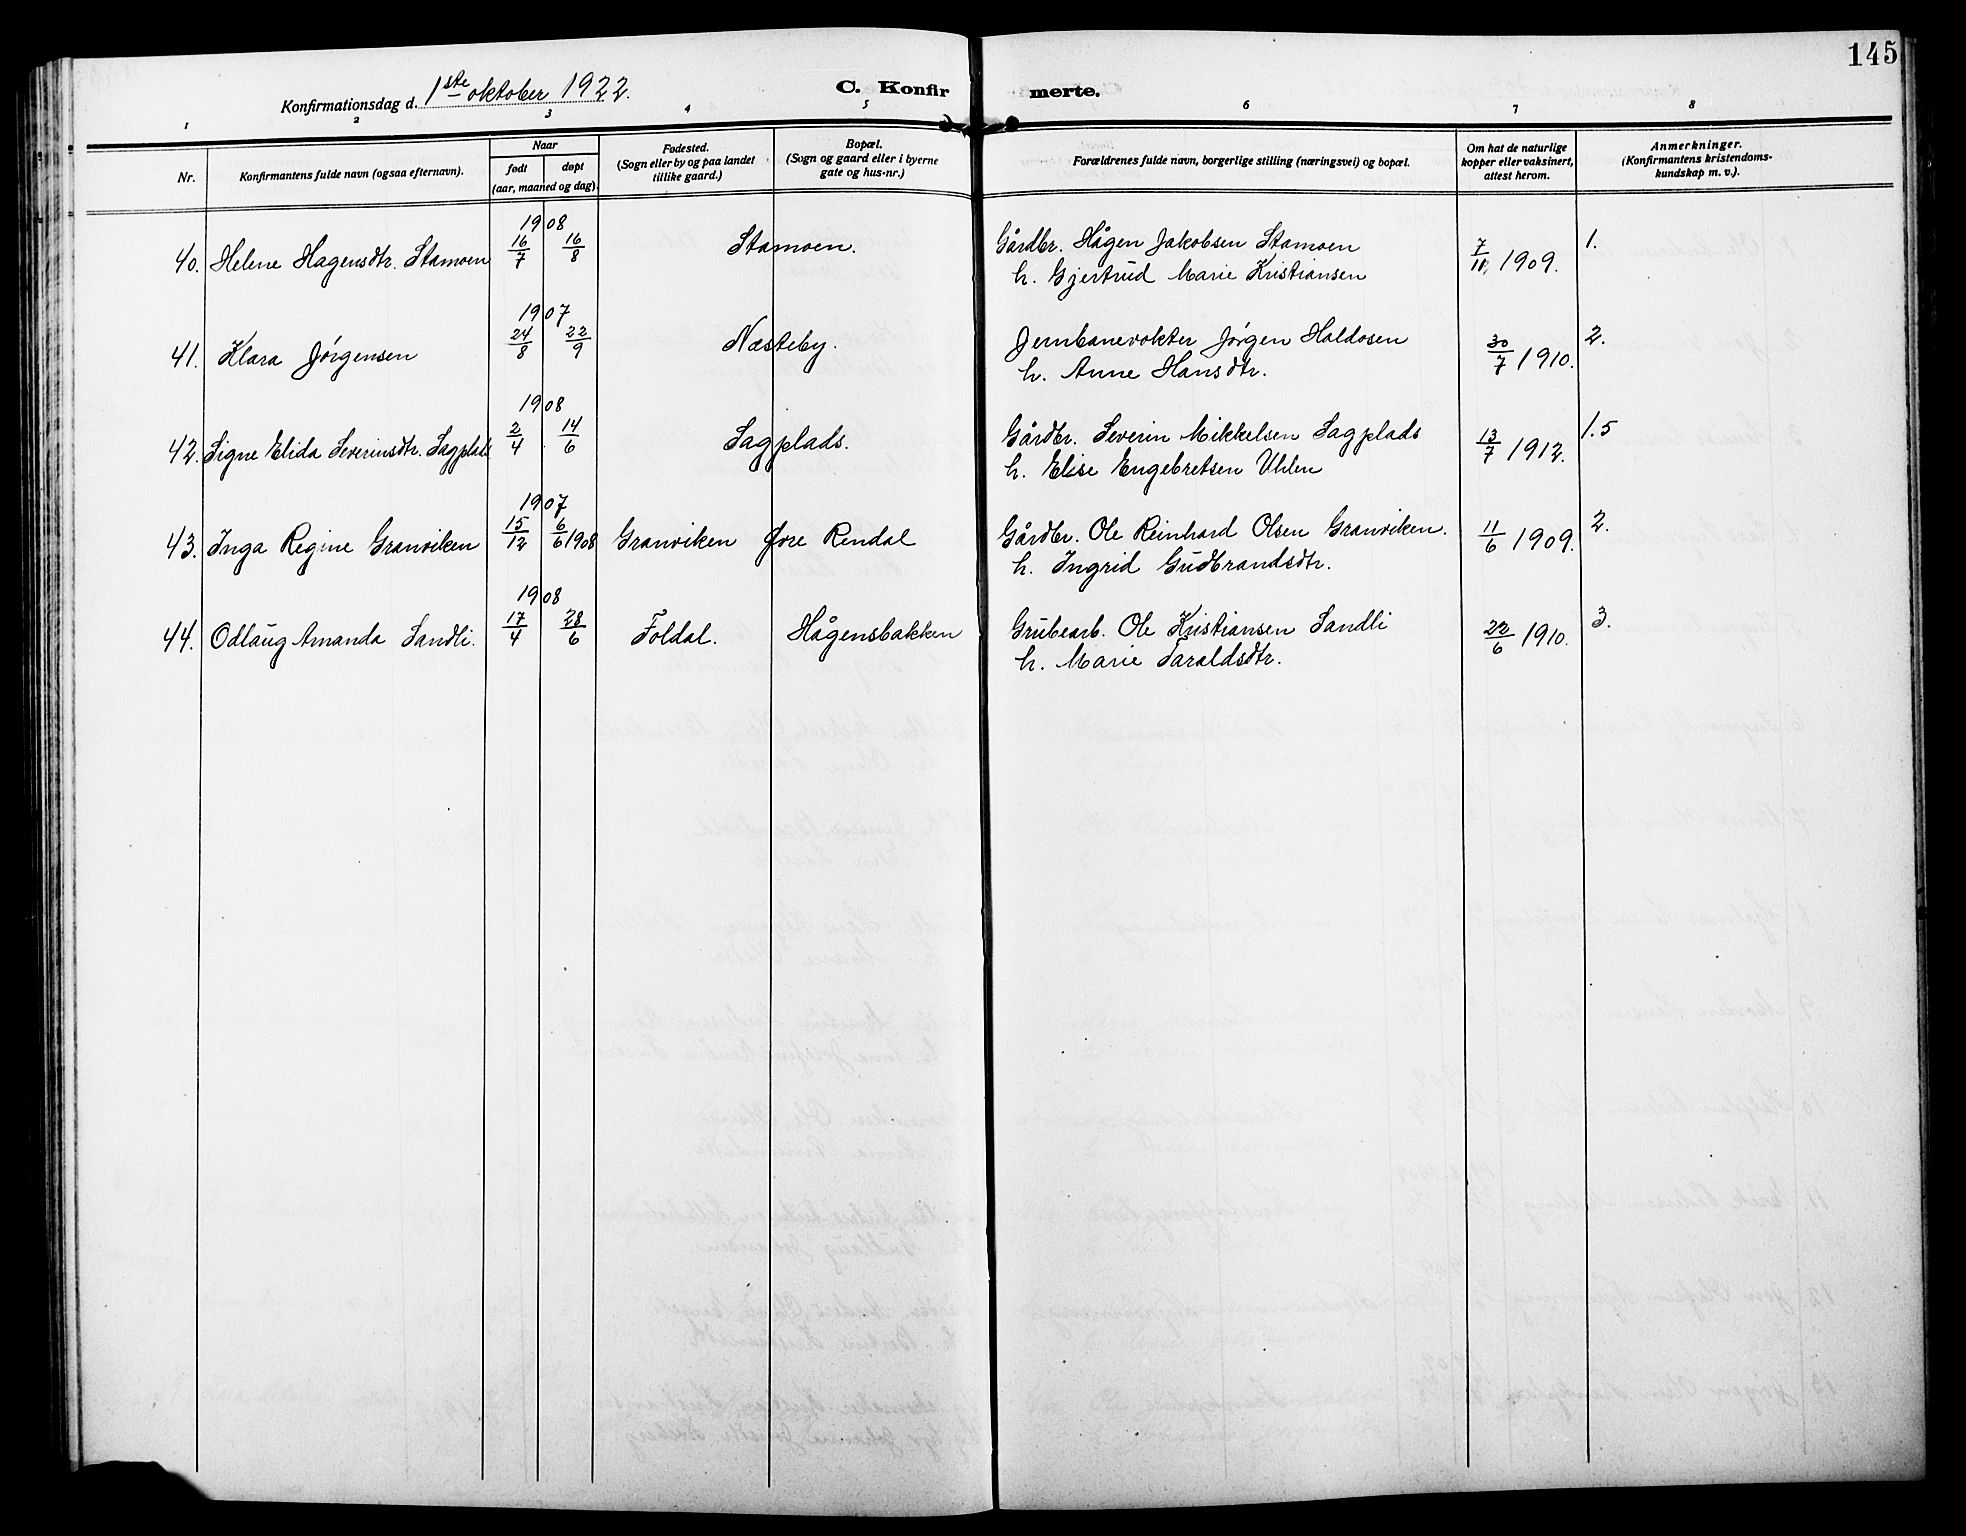 145
Konfirmationsdag d. 1ste oktober 1922.
C. Konfir merte.
1 2 3 4 5 6 7 8
Nr.
Konfirmantens fulde navn (ogsaa efternavn).
Naar
født døpt
(aar, maaned og dag).
Fødested.
(Sogn eller by og paa landet
tillike gaard.)
Bopæl.
(Sogn og gaard eller i byerne
gate og hus-nr.)
Forældrenes fulde navn, borgerlige stilling (næringsvei) og bopæl.
Om hat de naturlige
kopper eller vaksinert,
attest herom.
Anmerkninger.
(Konfirmantens kristendoms-
kundskap m. v.).
1908
40. Helene Hagensdtr. Stamoen 16/7 16/8 Stamoen. Gårdbr. Hågen Jakobsen Stamoen 7/11 1909. 1.
h. Gjertrud Marie Kristiansen
1907
41. Klara Jörgensen 24/8 22/9 Næsteby. Jernbanevokter Jørgen Haldosen 30/7 1910. 2.
h. Anne Hansdtr.
1908
42. Signe Elida Severinsdtr. Sagplads 2/4 14/6 Sagplads. Gårdbr. Severin Mikkelsen Sagplads 13/7 1912. 1.5
h. Elise Engebretsen Uhlen
1907
43. Inga Regine Granviken 15/12 6/6 1908 Granviken Øvre Rendal Gårdbr. Ole Reinhard Olsen Granviken. 11/6 1909. 2.
h. Ingrid Gudbrandsdtr.
1908
44. Odlaug Amanda Sandli. 17/4 28/6 Foldal. Hågensbakken Grubearb. Ole Kristiansen Sandli 22/6 1910. 3.
h. Marie Taraldsdtr.